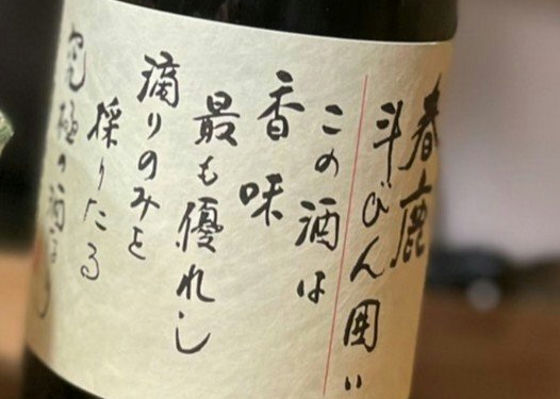 春鹿
斗びん囲い
この酒は
香味
最も優れし
滴りのみを
採りたる
究極の酒